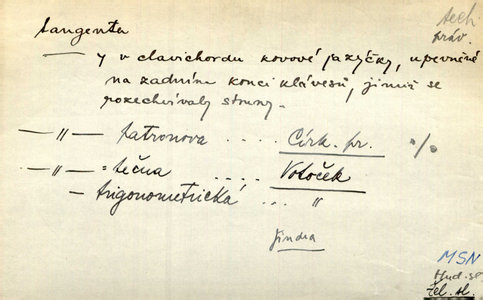 tech
práv.
tangenta
— y v clavichordu kovové jazýčky, upevněné
na zadním konci klávesů, jimiž se
rozechvívaly struny.
— " — tatronova .... Církt. pr. %
— " — = tečna .... Votoček
— trigonometrická ... "
Jindra
MSN
Hud. sl.
Žel. sl.